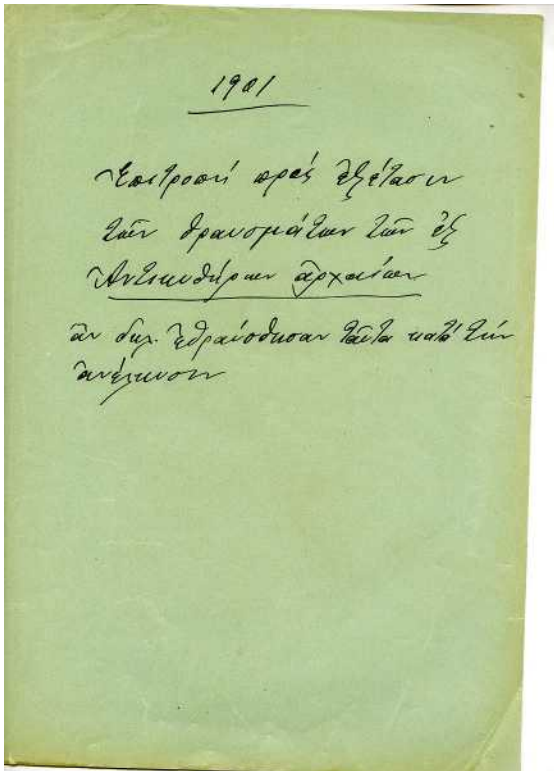 1901
Ἐπιτροπή πρός ἐξέτασιν
τῶν θραυσμάτων τῶν ἐξ
Ἀντικυθήρων ἀρχαίων
ἂν δηλ. ἐθραύσθησαν ταῦτα κατά τήν
ἀνέλκυσιν